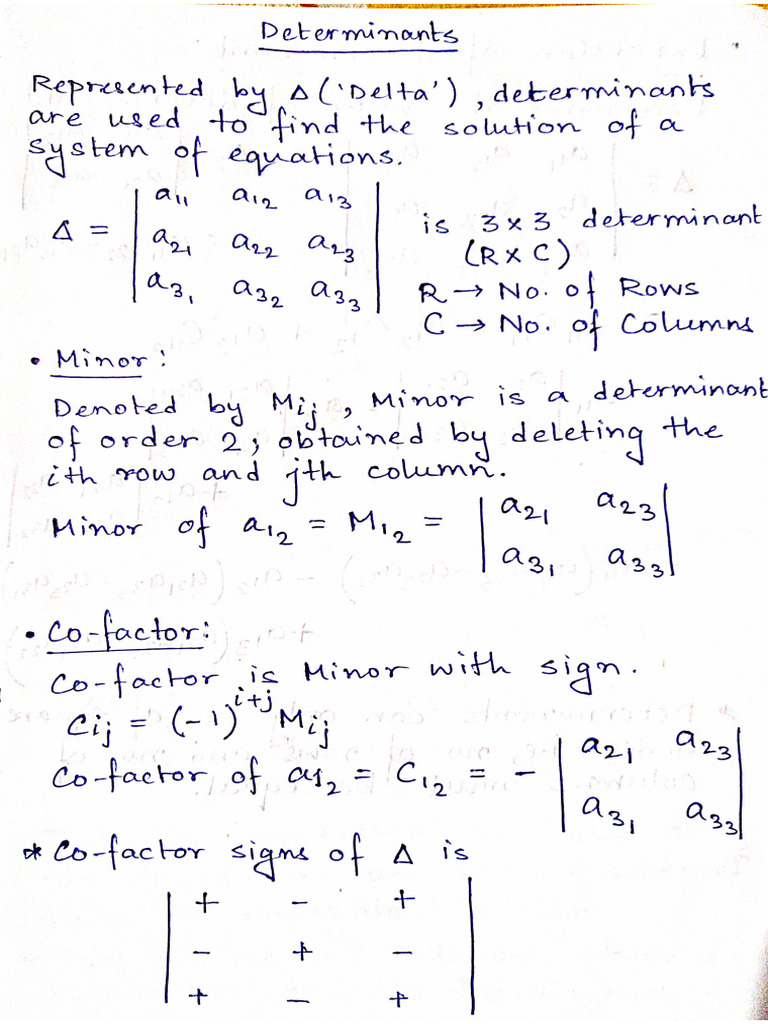 Determinants
Represented by Δ ('Delta'), determinants
are used to find the solution of a
system of equations.
Δ = | a11 a12 a13 |
| a21 a22 a23 |
| a31 a32 a33 |
is 3 x 3 determinant
(R x C)
R → No. of Rows
C → No. of Columns
• Minor:
Denoted by Mij, Minor is a determinant
of order 2, obtained by deleting the
ith row and jth column.
Minor of a12 = M12 = | a21 a23 |
| a31 a33 |
• Co-factor:
Co-factor is Minor with sign.
Cij = (-1)^i+j Mij
Co-factor of a12 = C12 = - | a21 a23 |
| a31 a33 |
* Co-factor signs of Δ is
| + - + |
| - + - |
| + - + |